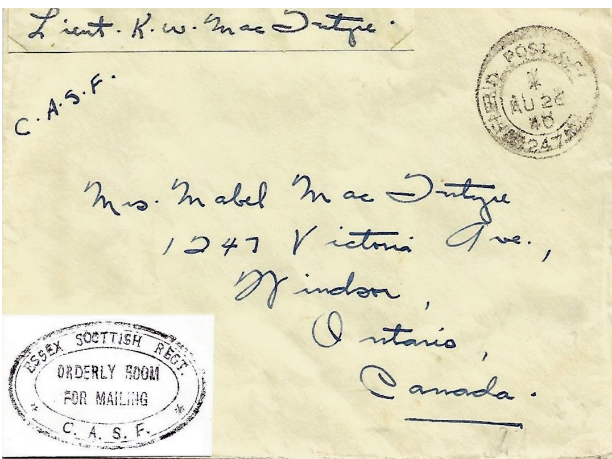 Lieut. K. W. MacIntyre.
C.A.S.F.
FIELD POST OFFICE
AU 26
40
247
Mrs. Mabel MacIntyre
1247 Victoria Ave.,
Windsor,
Ontario,
Canada.
ESSEX SCOTTISH REGT.
ORDERLY ROOM
FOR MAILING
C. A. S. F.